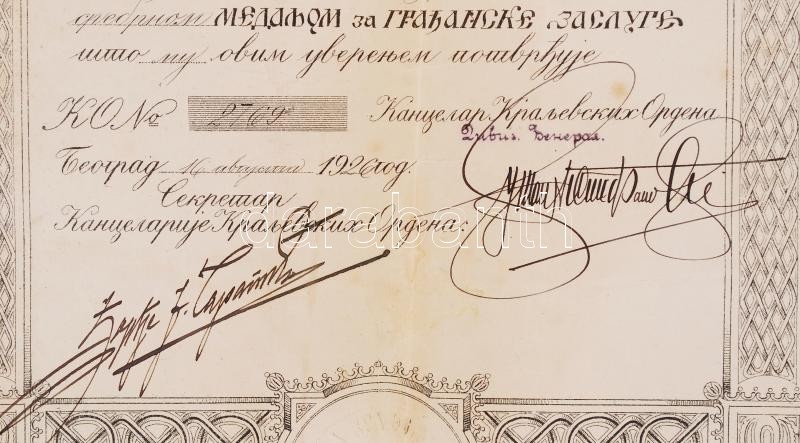 сребрном МЕДАЉОМ за ГРАЂАНСКЕ ЗАСЛУГЕ
што му овим уверењем потврђује
КО No 2769
Канцелар Краљевских Ордена
Дивиз. Ђенерал.
Београд 16 августа 1926 год.
Секретар
Канцеларије Краљевских Ордена:
darabanth